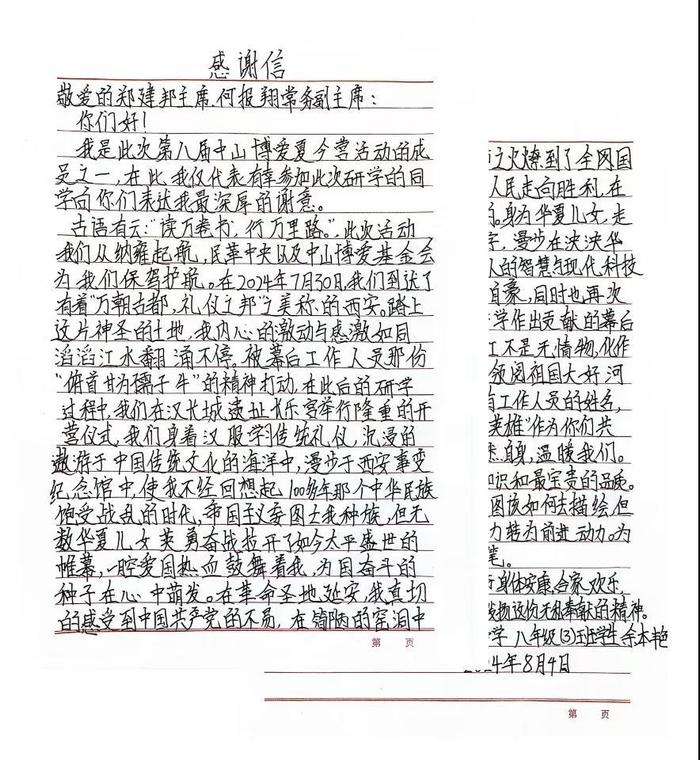 感谢信
敬爱的郑建邦主席、何报翔常务副主席：
你们好！
我是此次第八届中山博爱夏令营活动的成
员之一，在此，我仅代表有幸参加此次研学的同
学向你们表达我最深厚的谢意。
古语有云：“读万卷书，行万里路。”此次活动
我们从纳雍起航，民革中央以及中山博爱基金会
为我们保驾护航。在2024年7月30日，我们到达了
有着“万朝古都，礼仪之邦”之美称的西安。踏上
这片神圣的土地，我内心的激动与感激如同
滔滔江水翻涌不停。被幕后工作人员那份
“俯首甘为孺子牛”的精神打动，在此后的研学
过程中，我们在汉长城遗址长乐宫举行隆重的开
营仪式，我们身着汉服学习传统礼仪，沉浸的
遨游于中国传统文化的海洋中，漫步于西安事变
纪念馆中，使我不经回想起100多年那个中华民族
饱受战乱的时代，帝国主义妄图亡我种族，但无
数华夏儿女英勇奋战拉开了如今太平盛世的
帷幕，一腔爱国热血鼓舞着我，为国奋斗的
种子在心中萌发。在革命圣地延安，我真切
的感受到中国共产党的不易，在简陋的窑洞中
第 页
之火燎到了全网国
人民走向胜利，在
。身为华夏儿女，走
字，漫步在泱泱华
人的智慧与现代科技
自豪，同时也再次
学作出贡献的幕后
工不是无情物，化作
领阅祖国大好河
工作人员的姓名，
英雄”作为你们共
自身，温暖我们。
识和最宝贵的品质。
因该如何去描绘，但
力转为前进动力。为
笔。
身体安康，合家欢乐，
无私奉献的精神。
学 八年级(3)班学生 余本艳
24年8月4日
第 页